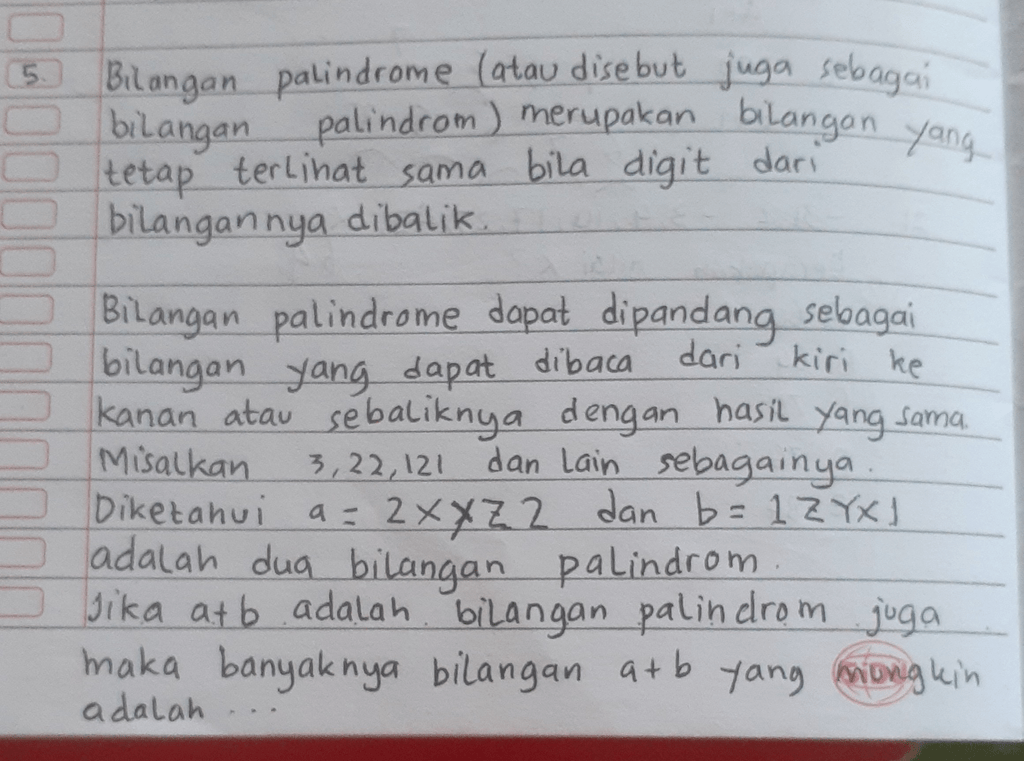 5. Bilangan palindrome (atau disebut juga sebagai
bilangan palindrom) merupakan bilangan yang
tetap terlihat sama bila digit dari
bilangannya dibalik.
Bilangan palindrome dapat dipandang sebagai
bilangan yang dapat dibaca dari kiri ke
kanan atau sebaliknya dengan hasil yang sama.
Misalkan 3, 22, 121 dan lain sebagainya.
Diketahui a = 2XYZ2 dan b = 1ZYX1
adalah dua bilangan palindrom.
Jika a+b adalah bilangan palindrom juga
maka banyaknya bilangan a+b yang mungkin
adalah ...